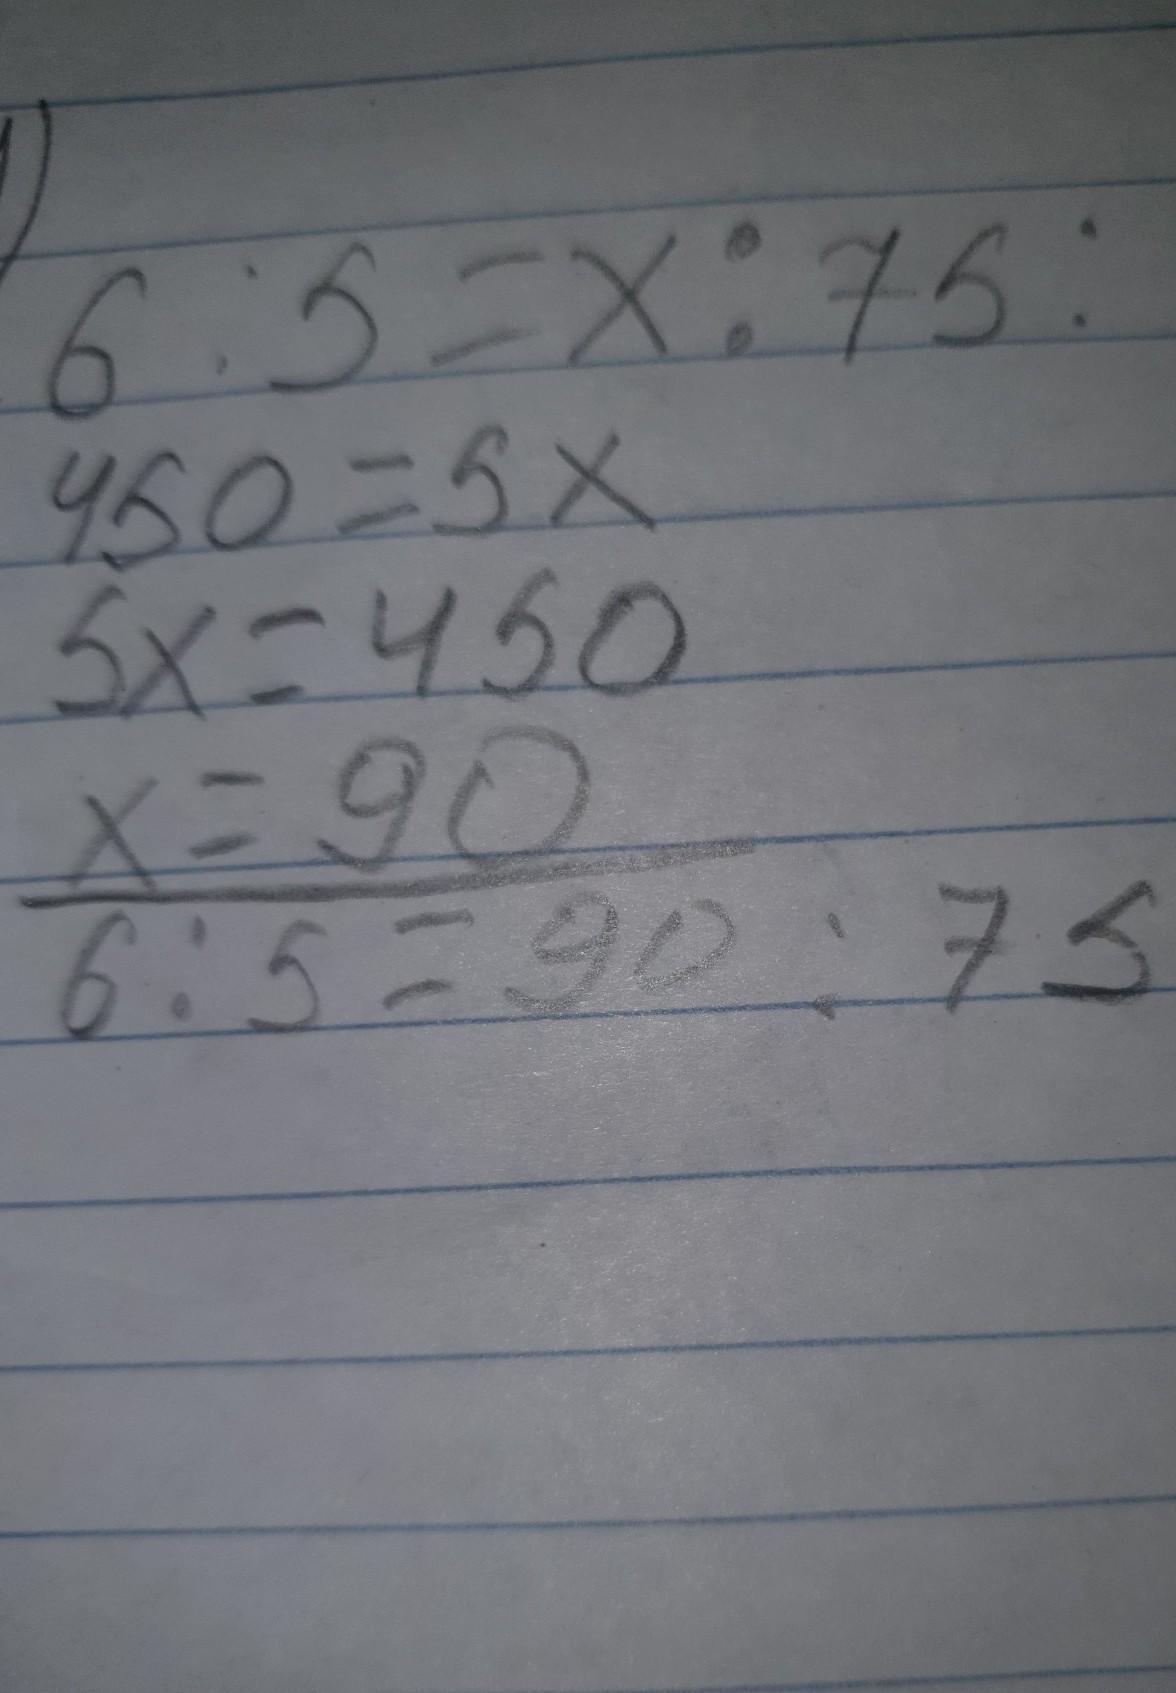 6 : 5 = x : 75 :
450 = 5x
5x = 450
x = 90
6 : 5 = 90 : 75